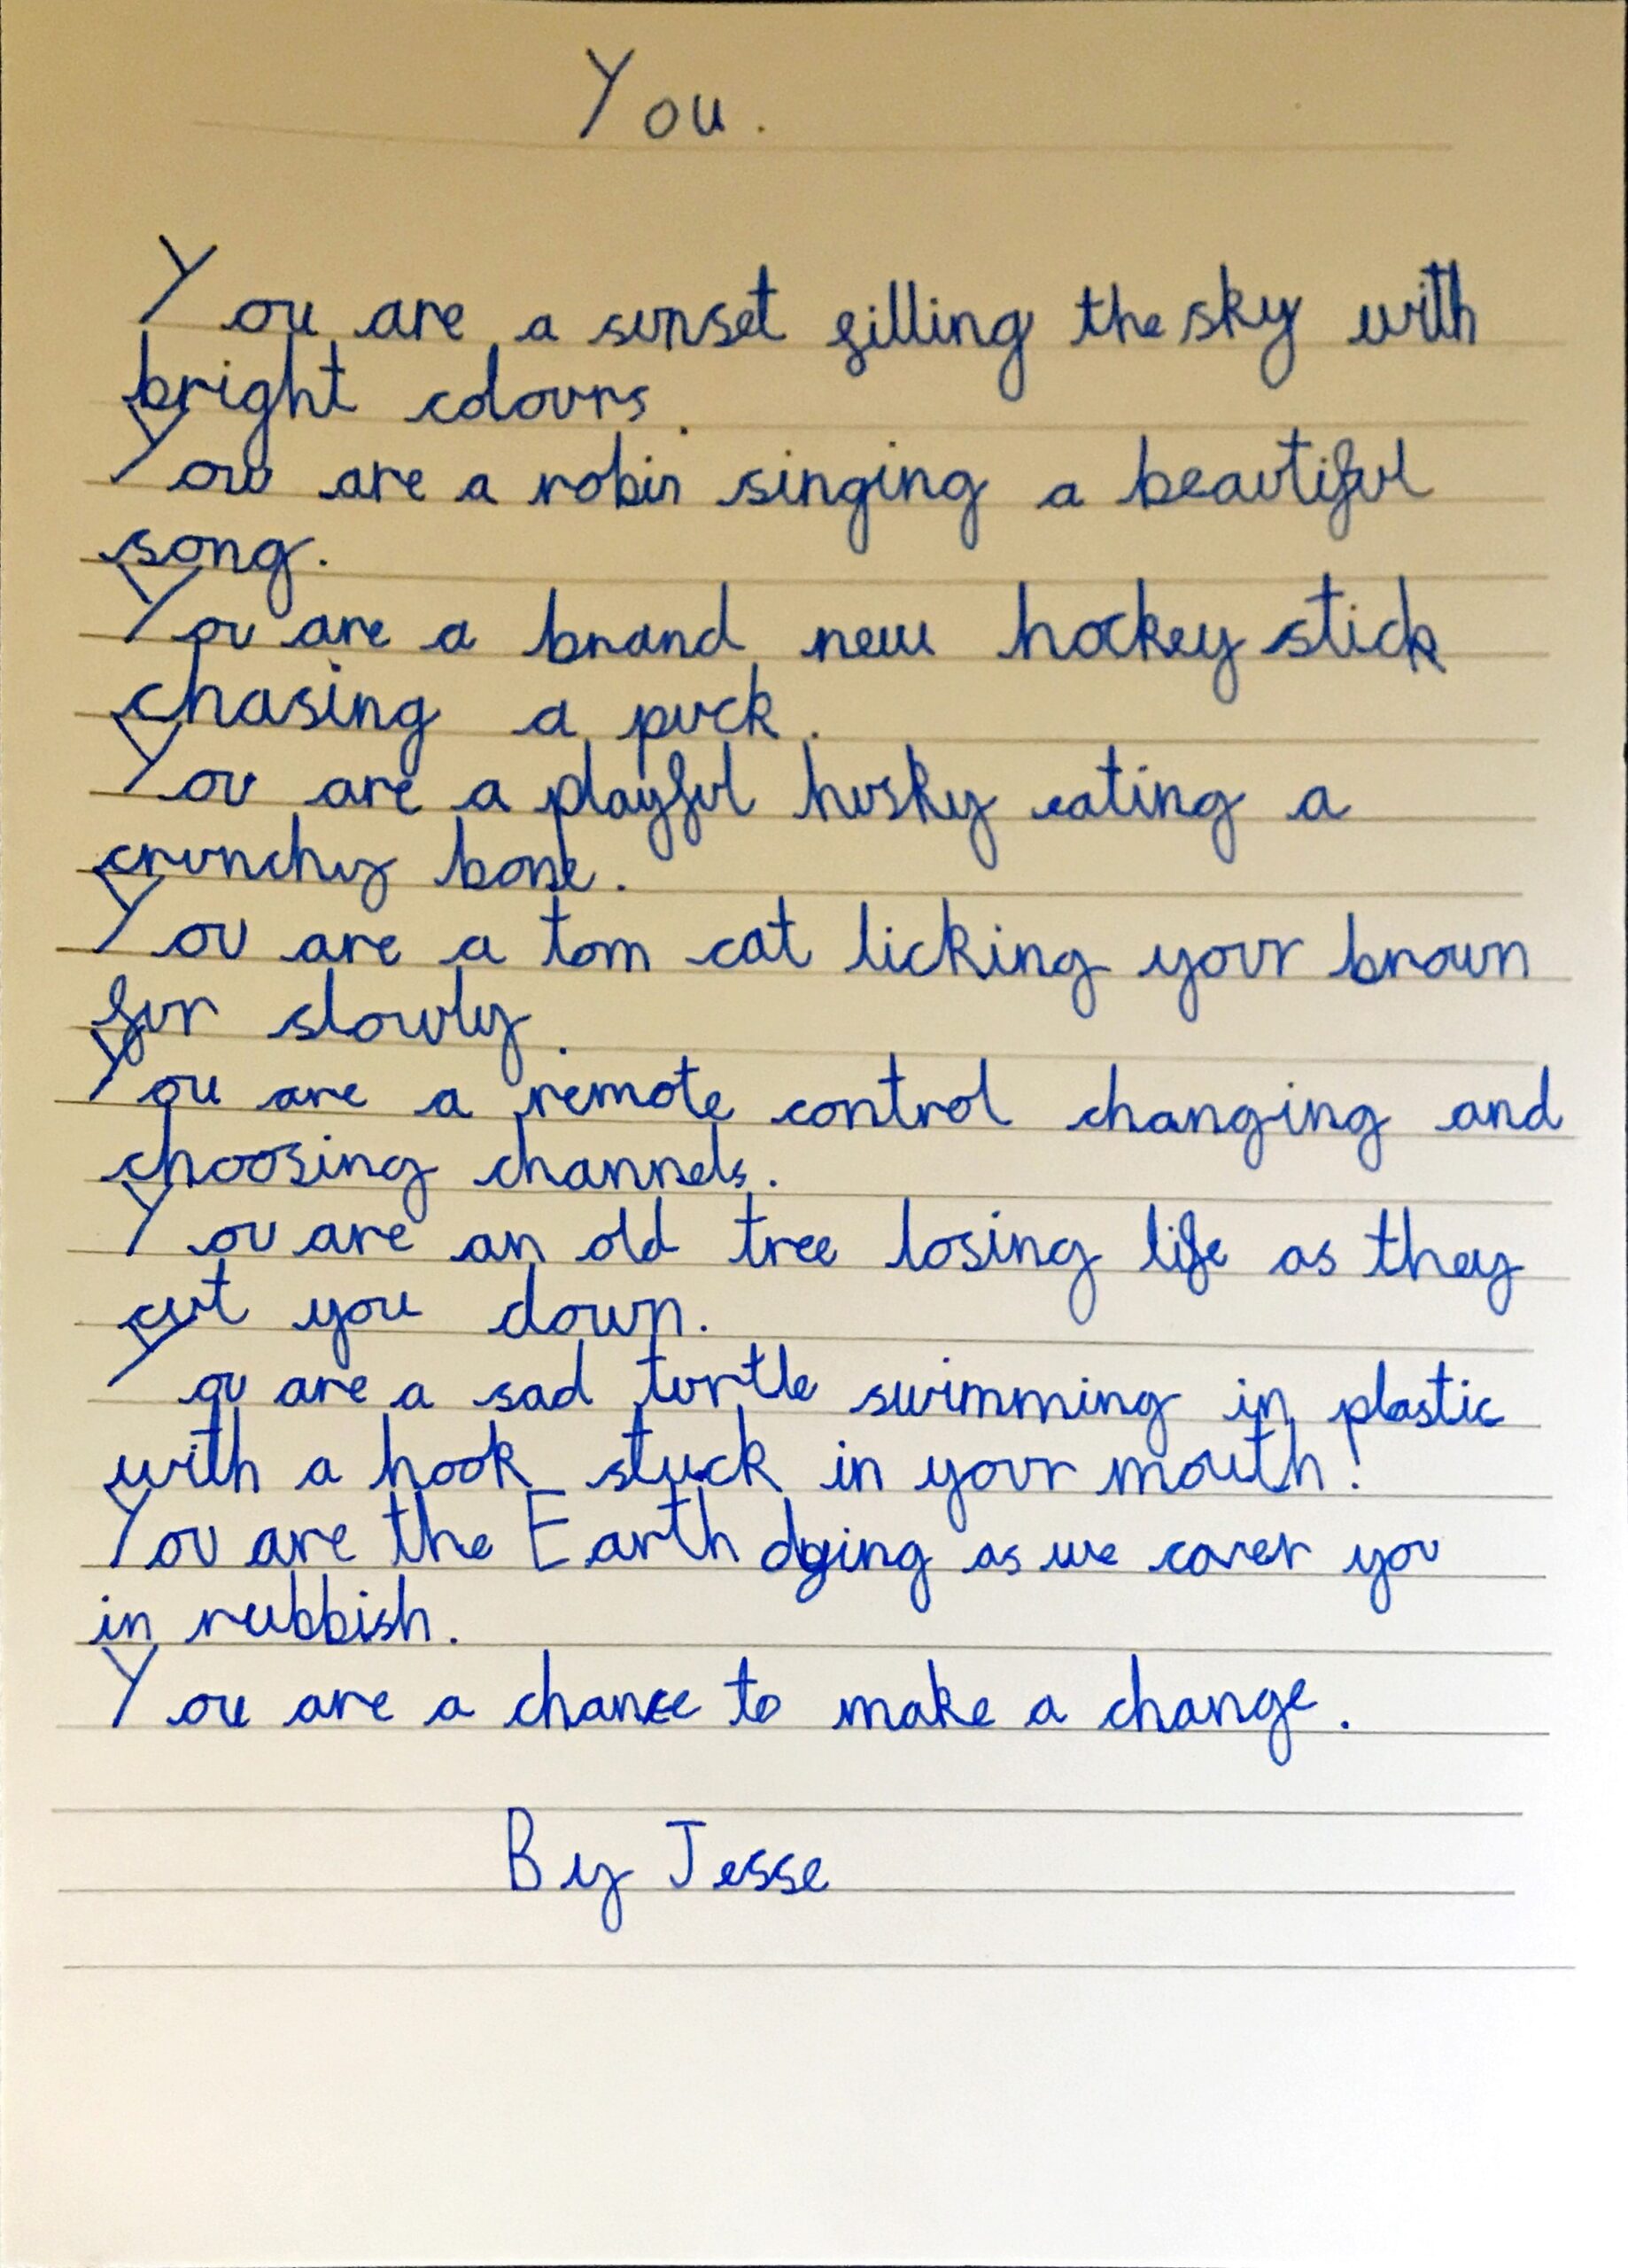 You.
You are a sunset filling the sky with
bright colours.
You are a robin singing a beautiful
song.
You are a brand new hockey stick
chasing a puck.
You are a playful husky eating a
crunchy bone.
You are a tom cat licking your brown
fur slowly.
You are a remote control changing and
choosing channels.
You are an old tree losing life as they
cut you down.
You are a sad turtle swimming in plastic
with a hook stuck in your mouth!
You are the Earth dying as we cover you
in rubbish.
You are a chance to make a change.
By Jesse